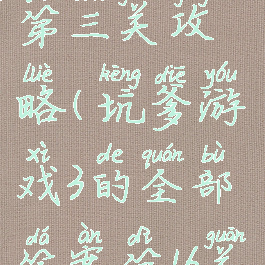 第三关攻
lüè kēng diē yóu
略(坑爹游
xì de quán bù
戏3的全部
dá àn dì guān
答案第16关